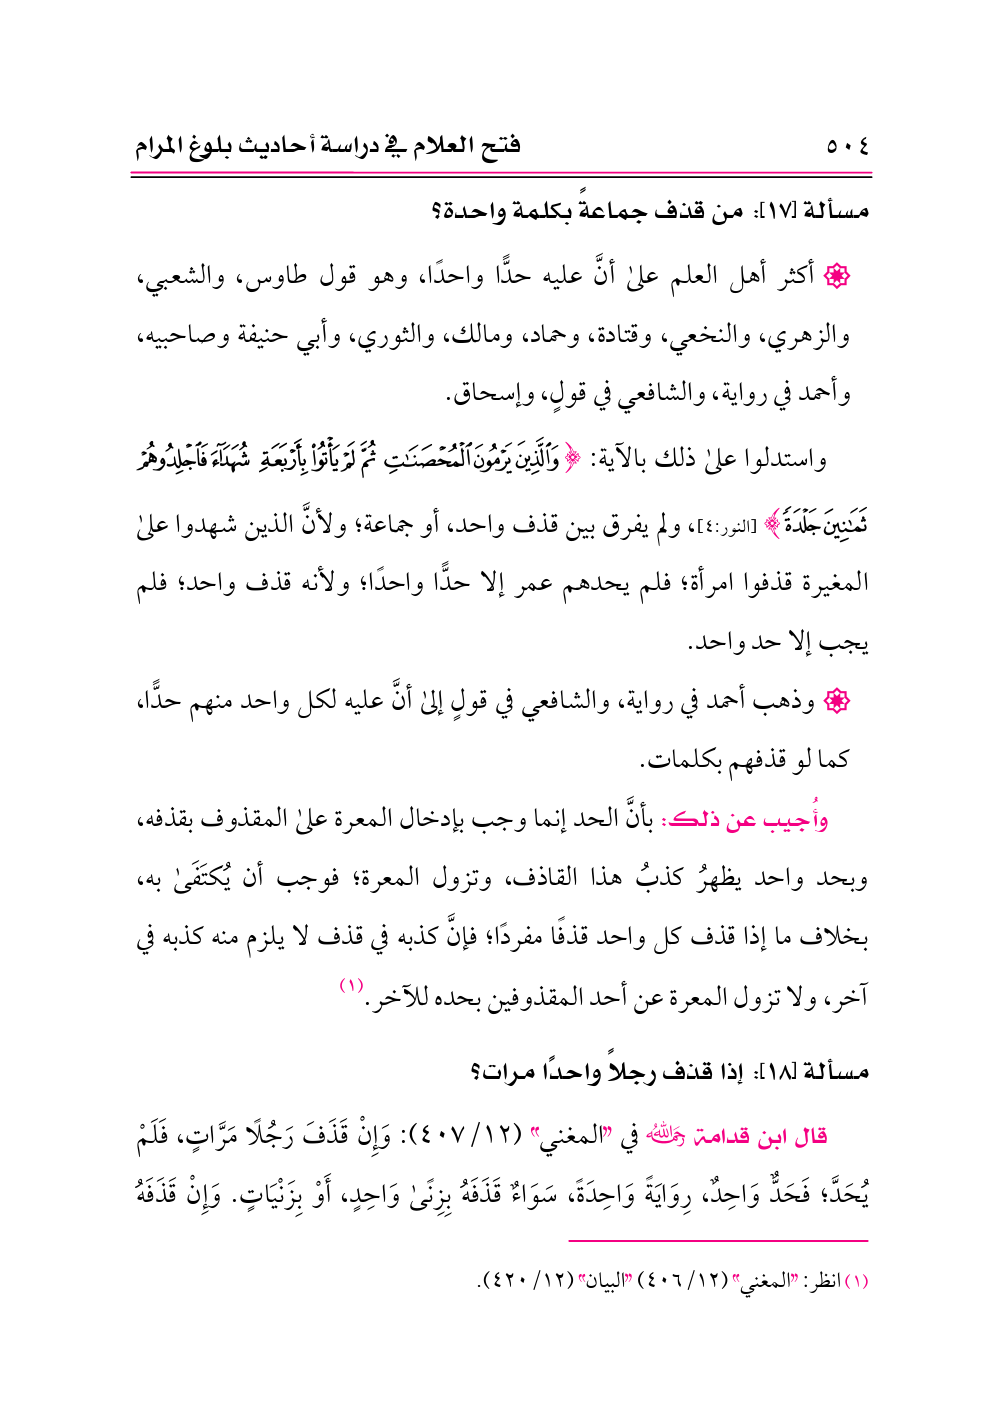 ٥٠٤ فتح العلام في دراسة أحاديث بلوغ المرام
مسألة [١٧]: من قذف جماعةً بكلمة واحدة؟
أكثر أهل العلم علىٰ أنَّ عليه حدًّا واحدًا، وهو قول طاوس، والشعبي،
والزهري، والنخعي، وقتادة، وحماد، ومالك، والثوري، وأبي حنيفة وصاحبيه،
وأحمد في رواية، والشافعي في قولٍ، وإسحاق.
واستدلوا علىٰ ذلك بالآية: ﴿وَٱلَّذِينَ يَرۡمُونَ ٱلۡمُحۡصَنَٰتِ ثُمَّ لَمۡ يَأۡتُواْ بِأَرۡبَعَةِ شُهَدَآءَ فَٱجۡلِدُوهُمۡ
ثَمَٰنِينَ جَلۡدَةٗ﴾ [النور:٤]، ولم يفرق بين قذف واحد، أو جماعة؛ ولأنَّ الذين شهدوا علىٰ
المغيرة قذفوا امرأة؛ فلم يحدهم عمر إلا حدًّا واحدًا؛ ولأنه قذف واحد؛ فلم
يجب إلا حد واحد.
وذهب أحمد في رواية، والشافعي في قولٍ إلىٰ أنَّ عليه لكل واحد منهم حدًّا،
كما لو قذفهم بكلمات.
وأُجيب عن ذلك: بأنَّ الحد إنما وجب بإدخال المعرة علىٰ المقذوف بقذفه،
وبحد واحد يظهرُ كذبُ هذا القاذف، وتزول المعرة؛ فوجب أن يُكتَفَىٰ به،
بخلاف ما إذا قذف كل واحد قذفًا مفردًا؛ فإنَّ كذبه في قذف لا يلزم منه كذبه في
آخر، ولا تزول المعرة عن أحد المقذوفين بحده للآخر.(١)
مسألة [١٨]: إذا قذف رجلاً واحدًا مرات؟
قال ابن قدامة رَحِمَهُ اللهُ في "المغني" (١٢/ ٤٠٧): وَإِنْ قَذَفَ رَجُلًا مَرَّاتٍ، فَلَمْ
يُحَدَّ؛ فَحَدٌّ وَاحِدٌ، رِوَايَةً وَاحِدَةً، سَوَاءٌ قَذَفَهُ بِزِنًىٰ وَاحِدٍ، أَوْ بِزَنْيَاتٍ. وَإِنْ قَذَفَهُ
(١) انظر: "المغني" (١٢/ ٤٠٦) "البيان" (١٢/ ٤٢٠).